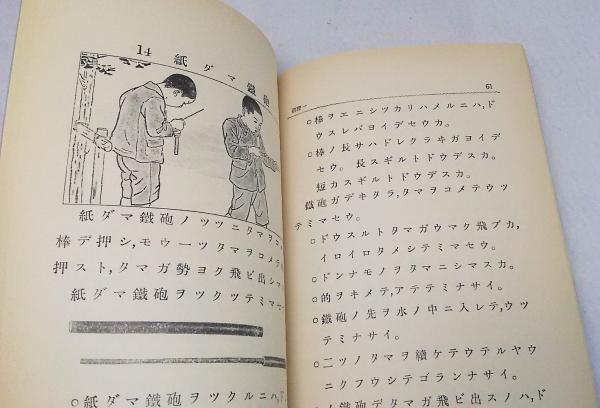 14 紙ダマ鐵砲
紙ダマ鐵砲ノツツニタマヲコメ
棒デ押シ,モウ一ツタマヲコメテ
押スト,タマガ勢ヨク飛ビ出シマ
紙ダマ鐵砲ヲツクツテミマセ
○紙ダマ鐵砲ヲツクルニハ,ド
61
○棒ヲエニシツカリハメルニハ,ド
ウスレバヨイデセウカ。
○棒ノ長サハドレクラヰガヨイデ
セウ。長スギルトドウデスカ。
短カスギルトドウデスカ。
鐵砲ガデキタラ,タマヲコメテウツ
テミマセウ。
○ドウスルトタマガウマク飛ブカ,
イロイロタメシテミマセウ。
○ドンナモノヲタマニシマスカ。
○的ヲキメテ,アテテミナサイ。
○鐵砲ノ先ヲ水ノ中ニ入レテ,ウツ
テミナサイ。
○二ツノタマヲ續ケテウテルヤウ
ニクフウシテゴランナサイ。
鐵砲デタマガ飛ビ出スノハ,ド